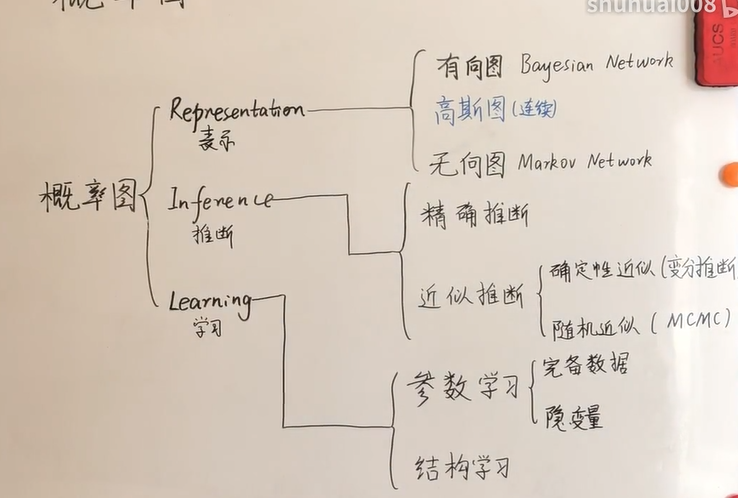 shuhuai008
概率图
Representation
表示
有向图 Bayesian Network
高斯图(连续)
无向图 Markov Network
概率图
Inference
推断
精确推断
近似推断
确定性近似(变分推断
随机近似(MCMC)
Learning
学习
参数学习
完备数据
隐变量
结构学习
UCS